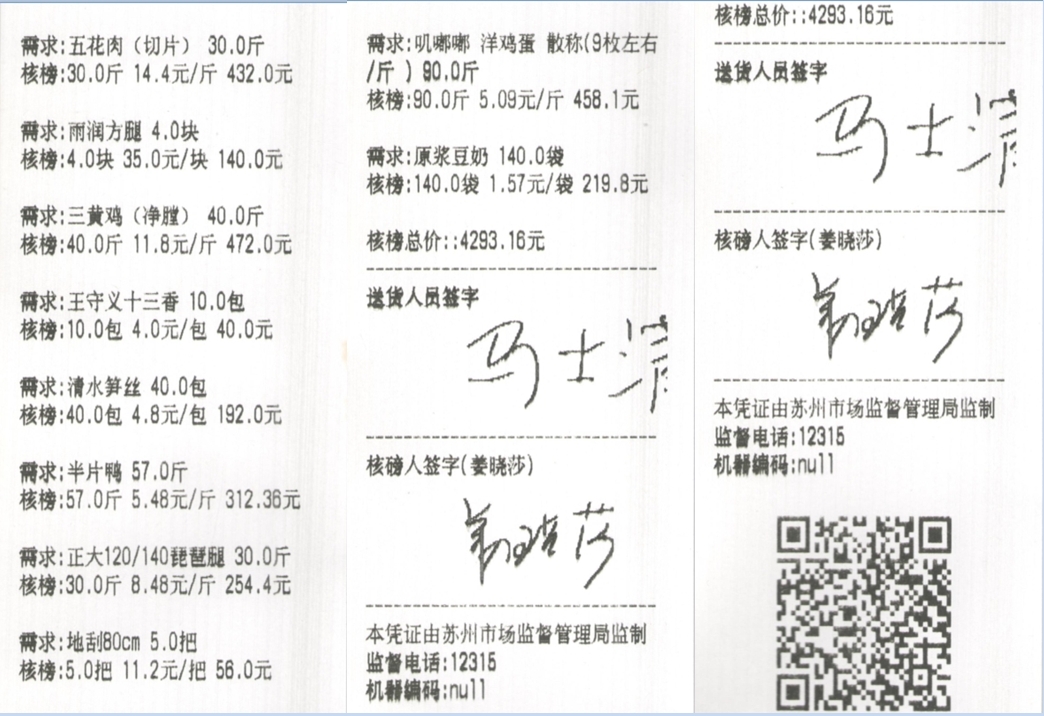 需求:五花肉（切片） 30.0斤
核榜:30.0斤 14.4元/斤 432.0元
需求:雨润方腿 4.0块
核榜:4.0块 35.0元/块 140.0元
需求:三黄鸡（净膛） 40.0斤
核榜:40.0斤 11.8元/斤 472.0元
需求:王守义十三香 10.0包
核榜:10.0包 4.0元/包 40.0元
需求:清水笋丝 40.0包
核榜:40.0包 4.8元/包 192.0元
需求:半片鸭 57.0斤
核榜:57.0斤 5.48元/斤 312.36元
需求:正大120/140琵琶腿 30.0斤
核榜:30.0斤 8.48元/斤 254.4元
需求:地刮80cm 5.0把
核榜:5.0把 11.2元/把 56.0元
需求:叽嘟嘟 洋鸡蛋 散称(9枚左右
/斤 ) 90.0斤
核榜:90.0斤 5.09元/斤 458.1元
需求:原浆豆奶 140.0袋
核榜:140.0袋 1.57元/袋 219.8元
核榜总价::4293.16元
送货人员签字
马士
核磅人签字(姜晓莎)
姜晓莎
本凭证由苏州市场监督管理局监制
监督电话:12315
机器编码:null
核榜总价::4293.16元
送货人员签字
马士
核磅人签字(姜晓莎)
姜晓莎
本凭证由苏州市场监督管理局监制
监督电话:12315
机器编码:null